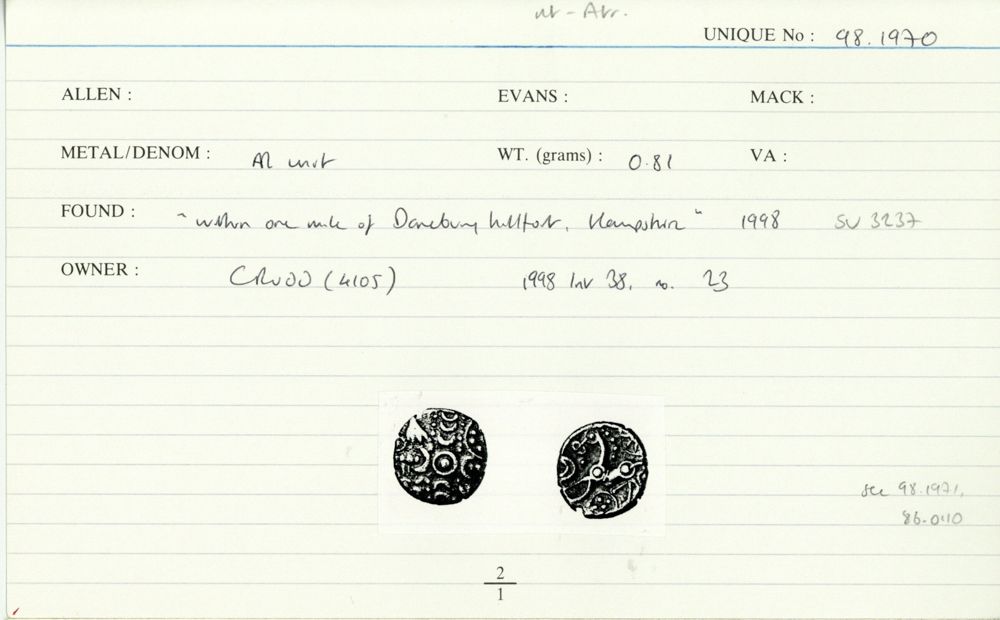 ut - Atr.
UNIQUE No : 98.1970
ALLEN : EVANS : MACK :
METAL/DENOM : AR unit WT. (grams) : 0.81 VA :
FOUND : "within one mile of Danebury hillfort, Hampshire" 1998 SU 3237
OWNER : CRUDD (4105) 1998 Inv 38, no. 23
see 98.1971,
86.0110
2
1